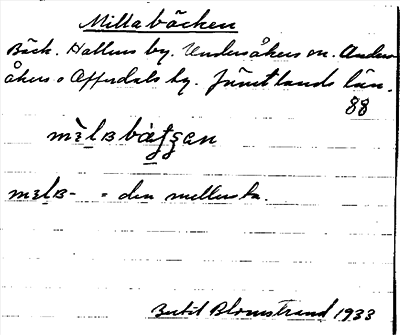 Millabäcken
Bäck. Hallens by. Undersåkers sn. Under-
åkers o Offerdals by. Jämtlands län.
88
mɛ̀lʙ bæ̀ʈʂan
mɛlʙ- = den mellersta.
Bertil Blomstrand 1933